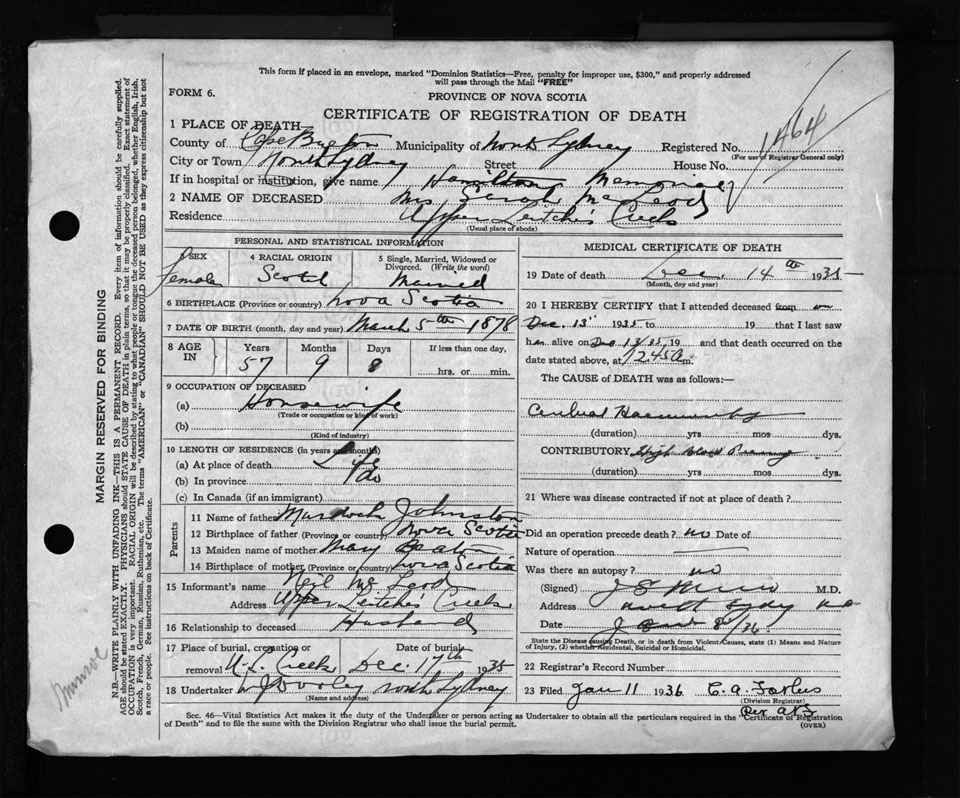 This form if placed in an envelope, marked "Dominion Statistics—Free, penalty for improper use, $300," and properly addressed
will pass through the Mail "FREE"
FORM 6.
PROVINCE OF NOVA SCOTIA
CERTIFICATE OF REGISTRATION OF DEATH
1464
1 PLACE OF DEATH—
County of Cape Breton Municipality of North Sydney Registered No.
(For use of Registrar General only)
City or Town North Sydney Street House No.
If in hospital or institution, give name Hamilton Memorial
2 NAME OF DECEASED Mrs Sarah McLeod
Residence Upper Leitches Creek
(Usual place of abode)
PERSONAL AND STATISTICAL INFORMATION
SEX 4 RACIAL ORIGIN 5 Single, Married, Widowed or
Divorced. (Write the word)
Female Scotch Married
6 BIRTHPLACE (Province or country) Nova Scotia
7 DATE OF BIRTH (month, day and year) March 5th 1878
8 AGE IN Years Months Days If less than one day,
57 9 8 hrs. or min.
9 OCCUPATION OF DECEASED
(a) Housewife
(Trade or occupation or kind of work)
(b)
(Kind of industry)
10 LENGTH OF RESIDENCE (in years and months)
(a) At place of death Life
(b) In province do
(c) In Canada (if an immigrant)
Parents
11 Name of father Murdock Johnston
12 Birthplace of father (Province or country) Nova Scotia
13 Maiden name of mother Mary Beaton
14 Birthplace of mother (Province or country) Nova Scotia
15 Informant's name Neil McLeod
Address Upper Leitches Creek
16 Relationship to deceased Husband
17 Place of burial, cremation or Date of burial
removal U. L. Creek Dec. 17th 1935
18 Undertaker W J Dooley North Sydney
(Name and address)
MEDICAL CERTIFICATE OF DEATH
19 Date of death Dec. 14th 1935
(Month, day and year)
20 I HEREBY CERTIFY that I attended deceased from on
Dec. 13 1935 to 19 that I last saw
her alive on Dec 13 35, 19 and that death occurred on the
date stated above, at 12.45 a m.
The CAUSE of DEATH was as follows:—
Cerebral Haemorrhage
(duration) yrs mos dys.
CONTRIBUTORY High blood Pressure
(duration) yrs mos dys.
21 Where was disease contracted if not at place of death?
Did an operation precede death? no Date of
Nature of operation
Was there an autopsy? no
(Signed) J S Munro M.D.
Address North Sydney N.S.
Date Jan 8/36
State the Disease causing Death, or in death from Violent Causes, state (1) Means and Nature
of Injury, (2) whether Accidental, Suicidal or Homicidal.
22 Registrar's Record Number
23 Filed Jan 11 1936 C. A. Forbes
(Division Registrar)
Per
Sec. 46—Vital Statistics Act makes it the duty of the Undertaker or person acting as Undertaker to obtain all the particulars required in the "Certificate of Registration
of Death" and to file the same with the Division Registrar who shall issue the burial permit.
(OVER)
MARGIN RESERVED FOR BINDING
N.B.—WRITE PLAINLY WITH UNFADING INK—THIS IS A PERMANENT RECORD. Every item of information should be carefully supplied.
AGE should be stated EXACTLY. PHYSICIANS should STATE CAUSE OF DEATH in plain terms, so that it may be properly classified. Exact statement of
OCCUPATION is very important. RACIAL ORIGIN will be described by stating to what people or tongue the deceased person belonged, whether English, Irish,
Scotch, French, German, Russian, Ruthenian, etc. The terms "AMERICAN" or "CANADIAN" SHOULD NOT BE USED as they express citizenship but not
a race or people. See instructions on back of Certificate.
Munroe